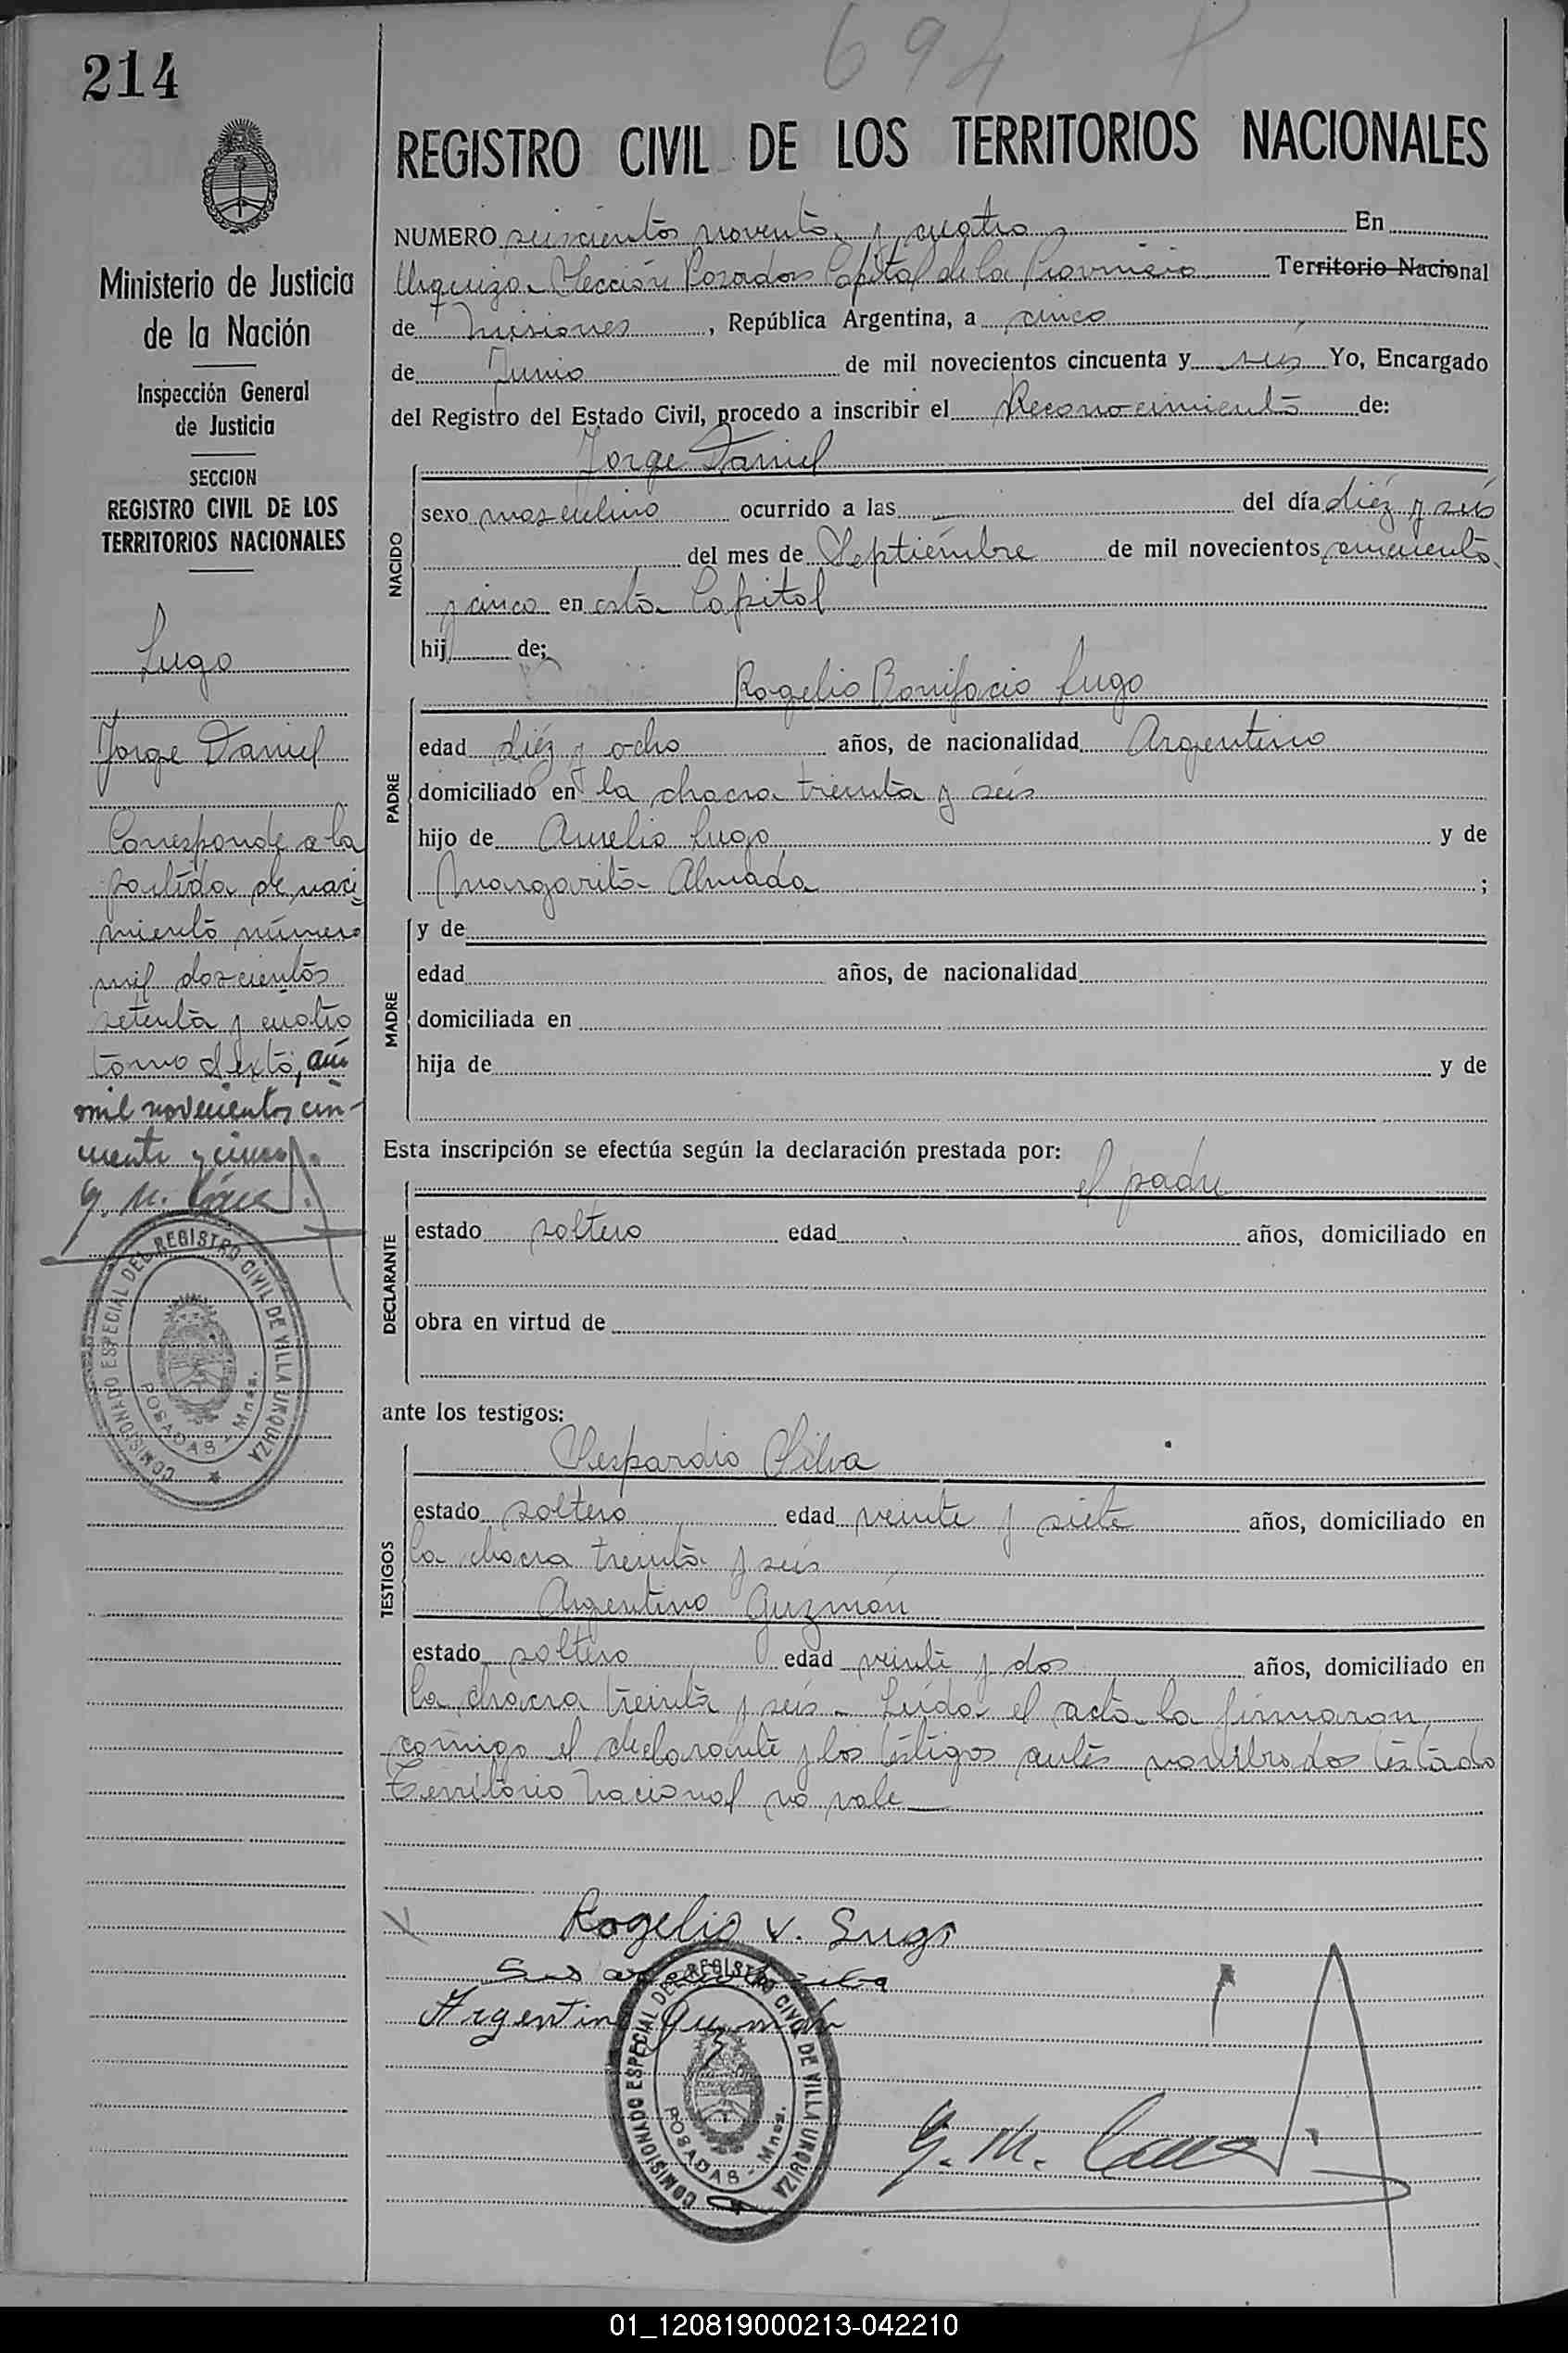 694
214
REGISTRO CIVIL DE LOS TERRITORIOS NACIONALES
Ministerio de Justicia
de la Nación
Inspección General
de Justicia
SECCION
REGISTRO CIVIL DE LOS
TERRITORIOS NACIONALES
Lugo
Jorge Daniel
Corresponde a la
partida de naci
miento número
mil doscientos
setenta y cuatro
tomo Sexto, año
mil novecientos cin-
cuenta y cinco.
G. M.
COMISIONADO ESPECIAL DEL REGISTRO CIVIL DE VILLA URQUIZA
POSADAS - Mnes.
NUMERO seiscientos noventa y cuatro En
Urquiza Sección Posadas Capital de la Provincia Territorio Nacional
de Misiones, República Argentina, a cinco
de Junio de mil novecientos cincuenta y seis Yo, Encargado
del Registro del Estado Civil, procedo a inscribir el Reconocimiento de:
NACIDO
Jorge Daniel
sexo masculino ocurrido a las — del día diéz y seis
del mes de Septiémbre de mil novecientos cincuenta
y cinco en esta Capital
hij de;
PADRE
Rogelio Bonifacio Lugo
edad diéz y ocho años, de nacionalidad Argentino
domiciliado en la chacra treinta y seis
hijo de Aurelio Lugo y de
Margarita Almada ;
MADRE
y de
edad años, de nacionalidad
domiciliada en
hija de y de
Esta inscripción se efectúa según la declaración prestada por:
DECLARANTE
el padre
estado soltero edad años, domiciliado en
obra en virtud de
ante los testigos:
TESTIGOS
Silva
estado soltero edad veinte y siete años, domiciliado en
la chacra treinta y seis
Argentino Guzmán
estado soltero edad veinte y dos años, domiciliado en
la chacra treinta y seis - Leída el acta la firmaron
comigo el declarante y los testigos antes nombrados testado
Territorio Nacional no vale —
Rogelio V. Lugo
Argentino Guzmán
COMISIONADO ESPECIAL DEL REGISTRO CIVIL DE VILLA URQUIZA
POSADAS - Mnes.
G. M.
01_120819000213-042210